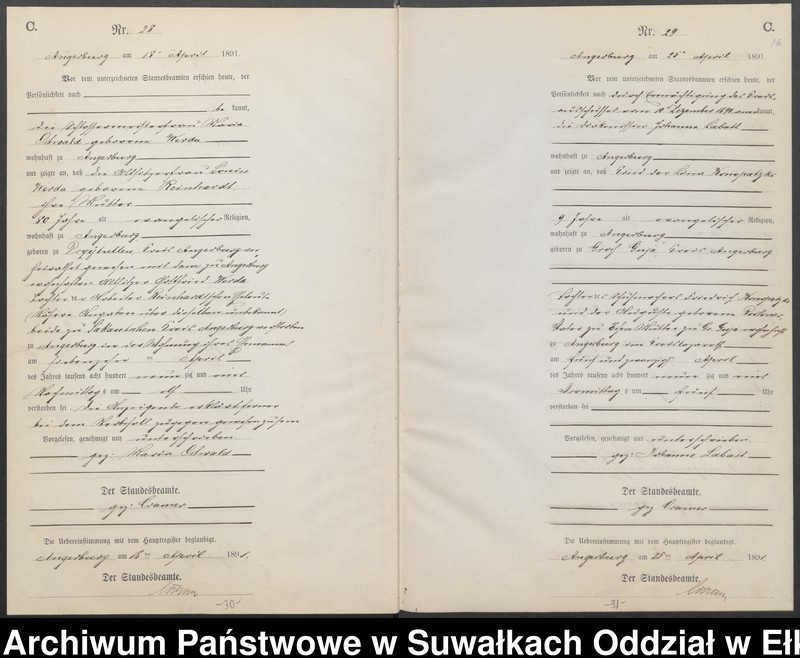 C.
Nr. 28
Angerburg am 18ten April 1891.
Vor dem unterzeichneten Standesbeamten erschien heute, der
Persönlichkeit nach
be kannt,
die Schlossermeisterfrau Maria
Ostwald geborene Werda
wohnhaft zu Angerburg
und zeigte an, daß die Altsitzerfrau Louise
Werda geborene Reinhardt
ihre Mutter
80 Jahre alt evangelischer Religion,
wohnhaft zu Angerburg
geboren zu Kreis Angerburg ver
heirathet gewesen mit dem zu Angerburg
Altsitzer Gottfried Werda
Tochter der Arbeiter Reinhardtschen Eheleute
Nähere Angaben über dieselben unbekannt,
beide zu Kreis Angerburg verstorben
zu Angerburg in der Wohnung ihres Ehemanns
am siebenzehn ten April
des Jahres tausend acht hundert neun zig und eins
Nachmittag s um elf Uhr
verstorben sei die Anzeigende erklärt ferner
bei dem Sterbefall zugegen gewesen zu sein
Vorgelesen, genehmigt und unterschrieben
gez: Maria Ostwald
Der Standesbeamte.
gez: Cramer
Die Uebereinstimmung mit dem Hauptregister beglaubigt.
Angerburg am 18ten April 1891.
Der Standesbeamte.
-30-
C.
Nr. 29
Angerburg am 25ten April 1891.
Vor dem unterzeichneten Standesbeamten erschien heute, der
Persönlichkeit nach durch Ermächtigung des Kreis-
ausschusses vom Dezember 1890 anerkannt,
die Diakonissin Johanna Labatt
wohnhaft zu Angerburg
und zeigte an, daß Kind der Lina Konopatzki
9 Jahre alt evangelischer Religion,
wohnhaft zu Angerburg
geboren zu Groß Guja Kreis Angerburg
Tochter des Friedrich Konopatzki
und der Auguste geborene
Vater zu Mutter zu Gr. Guja wohnhaft
zu Angerburg im Kreislazareth
am fünfundzwanzig April
des Jahres tausend acht hundert neun zig und eins
Vormittag s um fünf Uhr
verstorben sei
Vorgelesen, genehmigt und unterschrieben
gez: Johanna Labatt
Der Standesbeamte.
gez Cramer
Die Uebereinstimmung mit dem Hauptregister beglaubigt.
Angerburg am 25ten April 1891
Der Standesbeamte.
-31-
Archiwum Państwowe w Suwałkach Oddział w Ełk